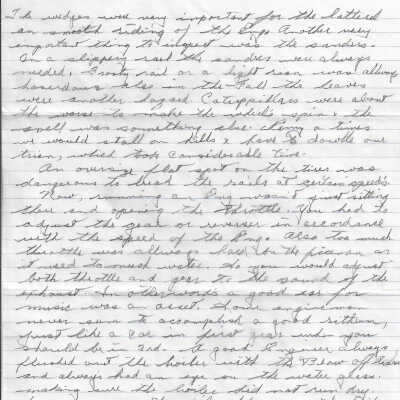 The wedges were very important for the lateral
an smooth riding of the Eng. Another very
important thing to inspect was the sanders.
In a slippery rail the sandres were always
needed. Frosty rail or a light rain was always
hazerdous. Also in the Fall the leaves
were another hazard. Caterpillers were about
the worse to make the wheels spin & the
smell was something else. Many a times
we would stall on hills & have to double our
train, which took considerable time.
An oversize flat spot on the tires was
dangerous to break the rails at certain speeds.
Now, running an Eng wasn't just sitting
there and opening the throttle. You had to
adjust the gear or reverser in accordance
with the speed of the Eng. Also too much
throttle was allways hard on the fireman as
it used to much water. So you would adjust
both throttle and gear to the sound of the
exhaust. In otherwords a good ear for
music was an asset. Some engineers
never seem to accomplish a good rithem,
just like a car in first gear when you
should be in 3rd. A good Engineer always
flushed out the boiler with the Blow of
and always had an eye on the water glass.
making sure the boiler did not run dry.